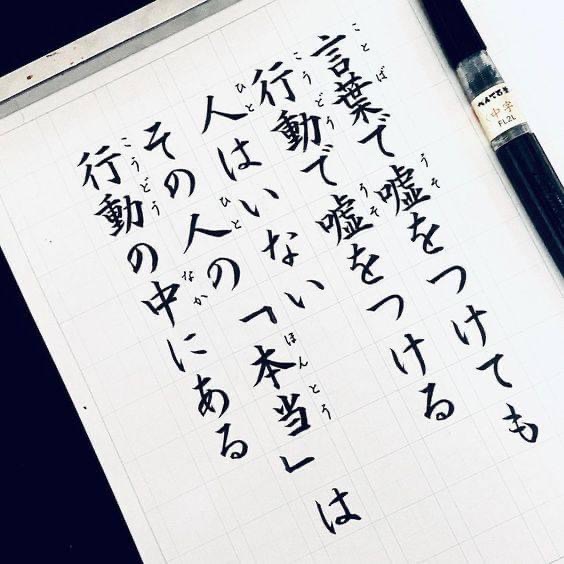 言葉で嘘をつけても
行動で嘘をつける
人はいない「本当」は
その人の
行動の中にある
ことば
うそ
こうどう
うそ
ひと
ほんとう
ひと
こうどう
なか
ぺんてる筆
中字
FL2L